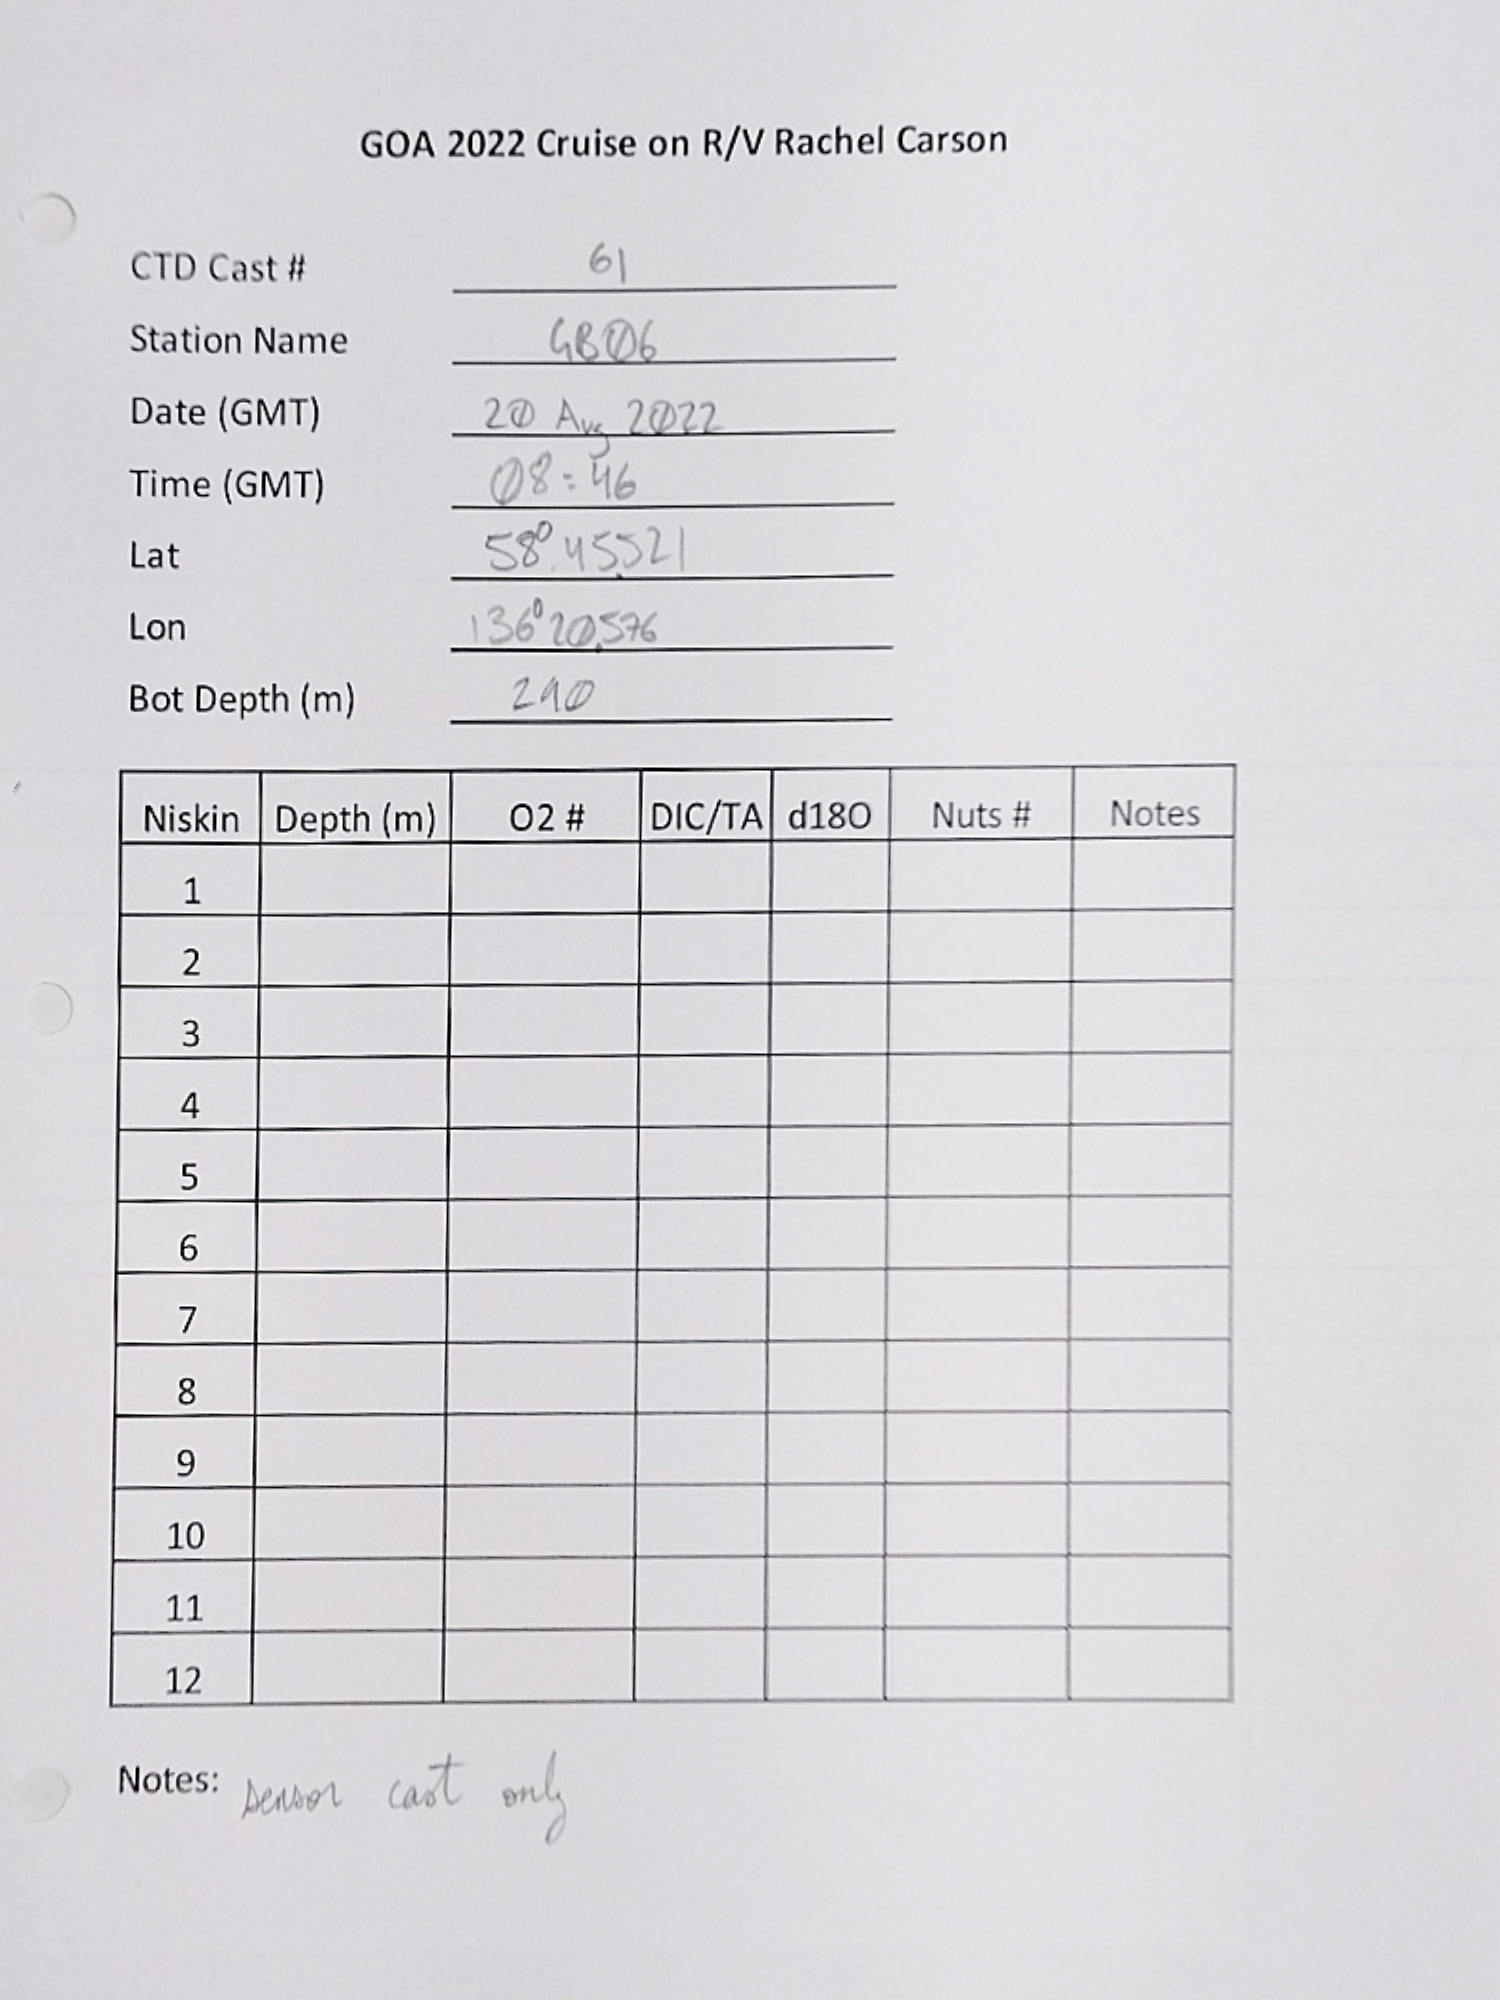 GOA 2022 Cruise on R/V Rachel Carson
CTD Cast # 61
Station Name GB06
Date (GMT) 20 Aug 2022
Time (GMT) 08:46
Lat 58° 45.521
Lon 136° 20.576
Bot Depth (m) 290
Niskin Depth (m) O2 # DIC/TA d18O Nuts # Notes
1
2
3
4
5
6
7
8
9
10
11
12
Notes: sensor cast only